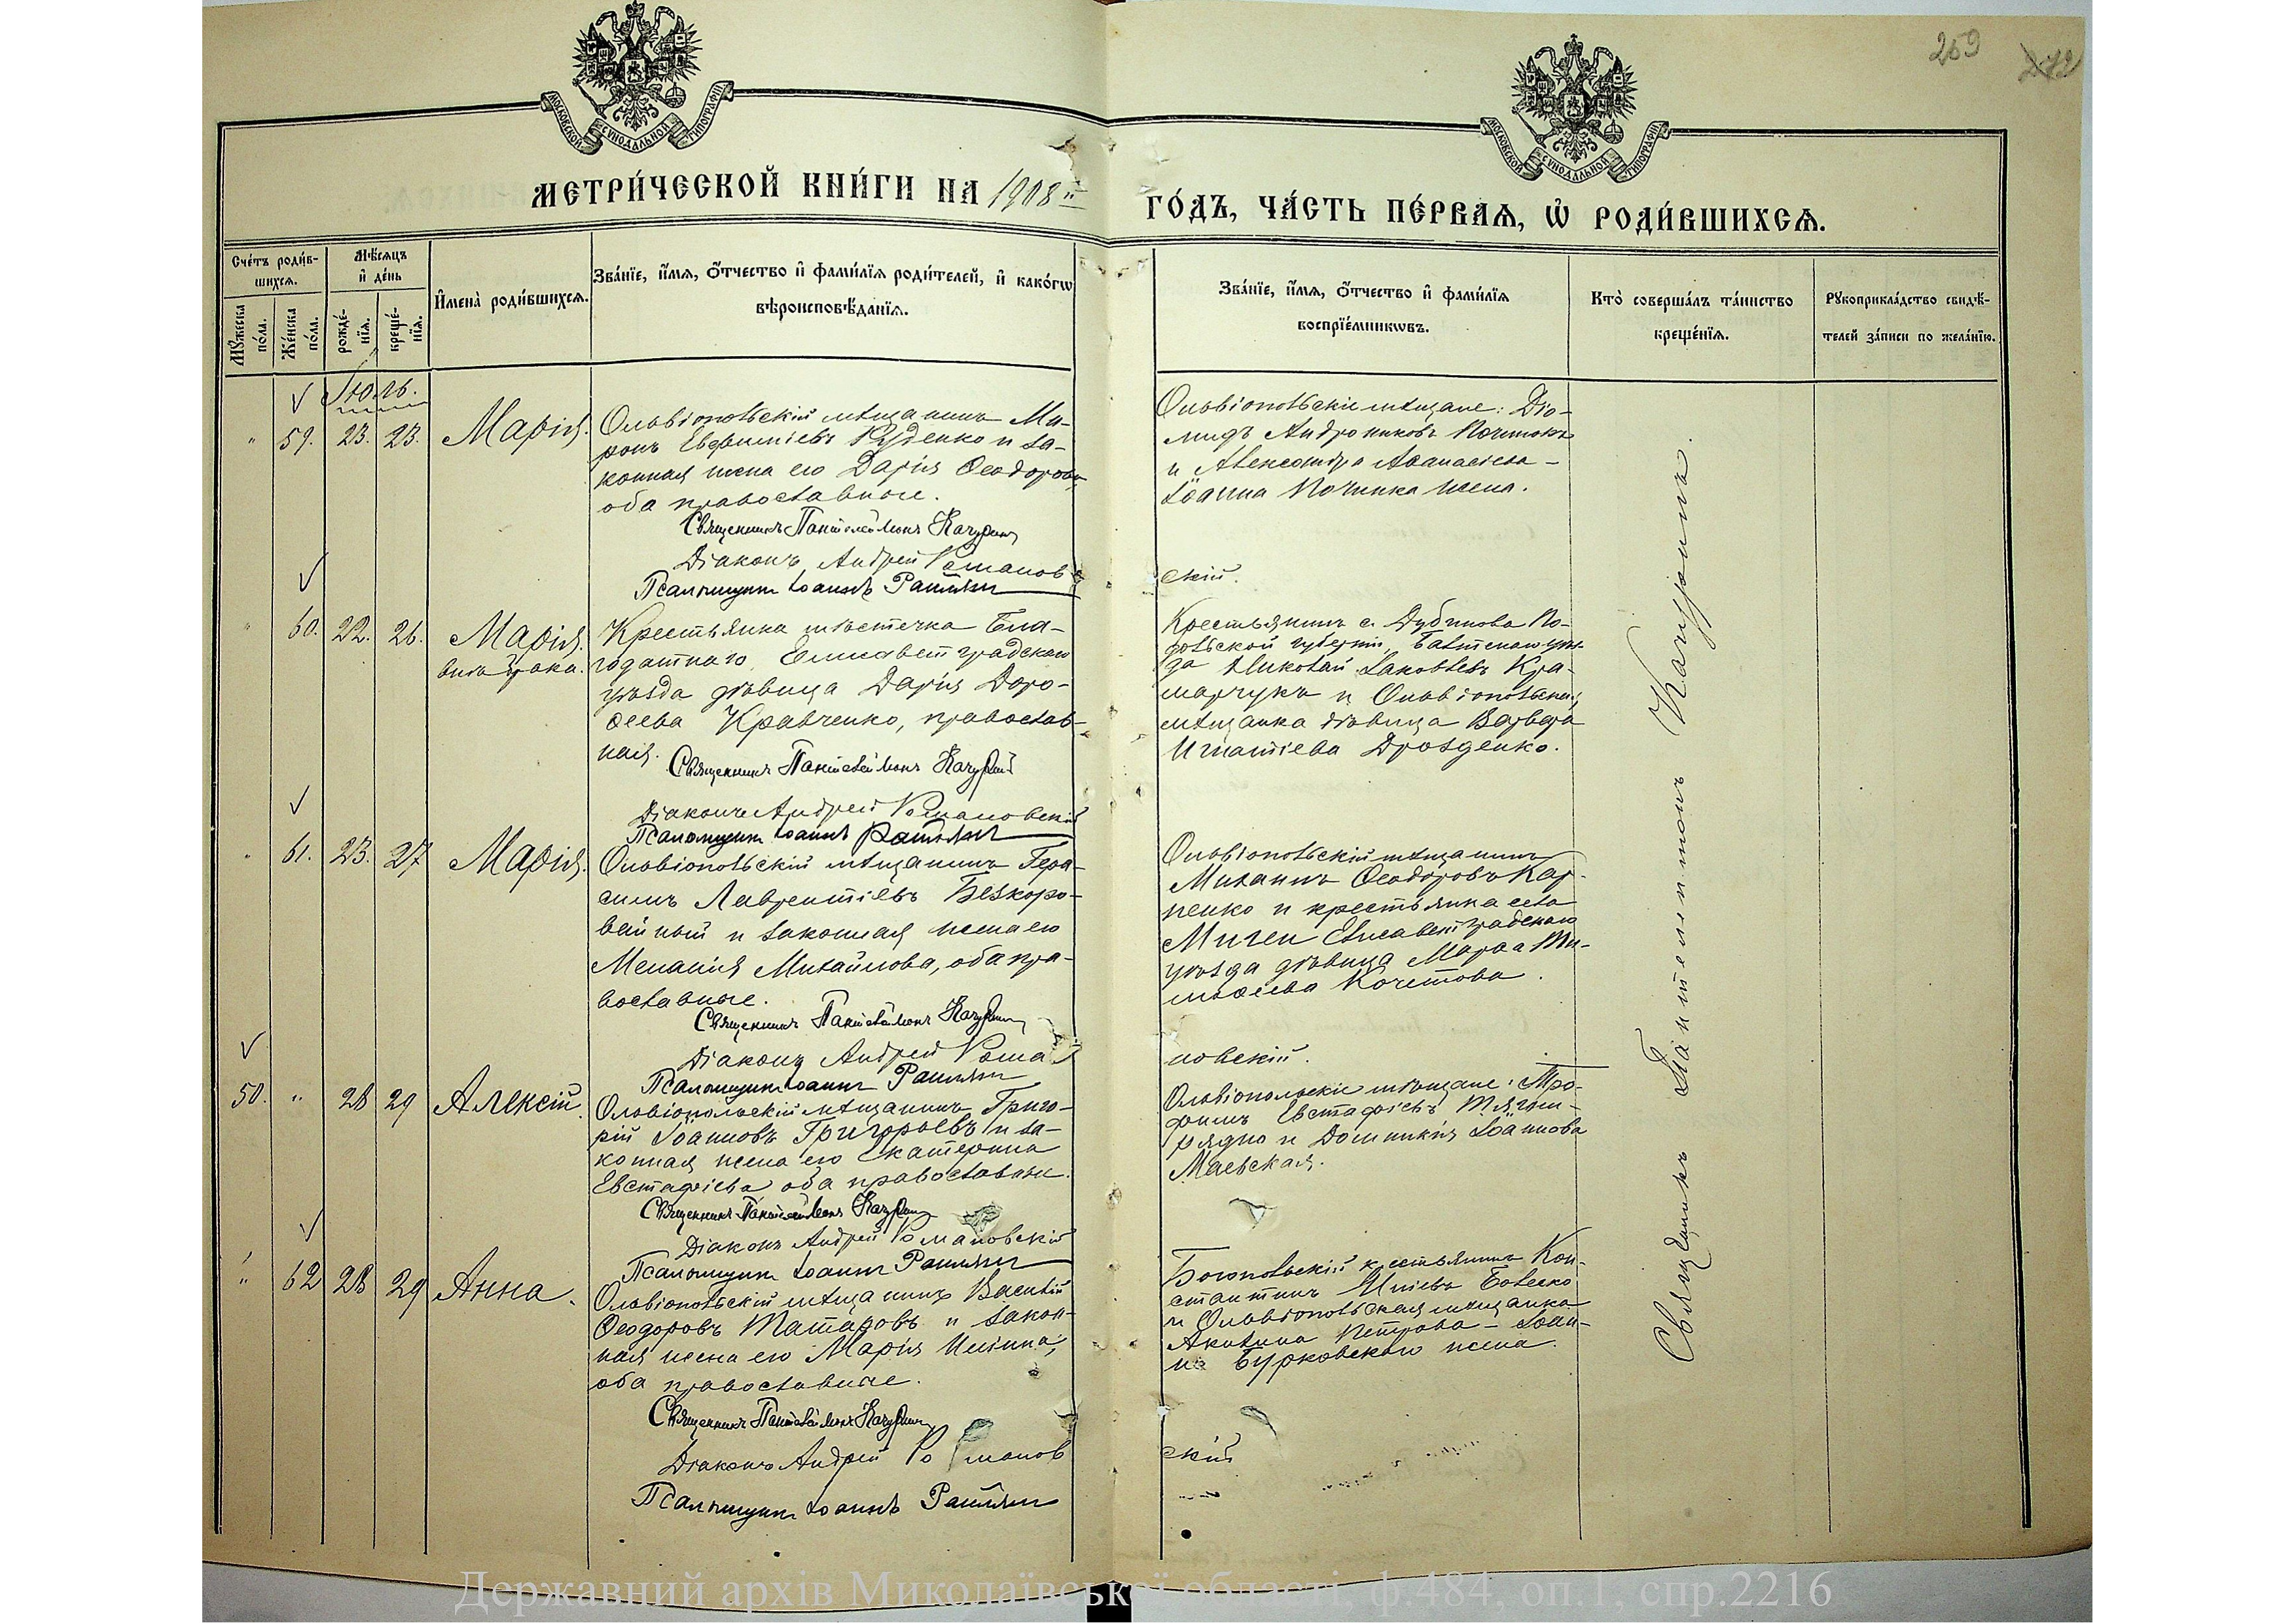 259
272
МОСКОВСКОЙ СѴНОДАЛЬНОЙ ТИПОГРАФІИ
МОСКОВСКОЙ СѴНОДАЛЬНОЙ ТИПОГРАФІИ
МЕТРИ́ЧЕСКОЙ КНИ́ГИ НА 1908 й
ГО́ДЪ, ЧА́СТЬ ПЕ́РВАѦ, Ѡ҆ РОДИ́ВШИХСѦ.
Сче́тъ роди́в-
шихсѧ.
Мꙋжеска по́ла.
Же́нска по́ла.
Мѣ́сѧцъ и҆ де́нь
рожде́-нїѧ.
креще́-нїѧ.
И҆мена̀ роди́вшихсѧ.
Зва́нїе, и҆́мѧ, ѻ҆́тчество и҆ фами́лїѧ роди́телей, и҆ како́гѡ
вѣроисповѣ́данїѧ.
Зва́нїе, и҆́мѧ, ѻ҆́тчество и҆ фами́лїѧ
воспрїе́мникѡвъ.
Кто̀ соверша́лъ та́инство
креще́нїѧ.
Рꙋкоприкла́дство свидѣ́-
телей за́писи по жела́нїю.
Іюль.
" 59. 23. 23. Марія.
Ольвіопольскій мѣщанинъ Ми-
ронъ Евфиміевъ Руденко и за-
конная жена его Дарія Ѳеодорова,
оба православные.
Священникъ Пантелеймонъ Качурин
Діаконъ Андрей Романов
Псаломщикъ Іоаннъ
Ольвіопольскіе мѣщане: Діо-
мидъ Андрониковъ
и Александра Аѳанасіева –
Іоанна Починка жена.
скій.
" 60. 22. 26. Марія.
внѣ брака.
Крестьянка мѣстечка Бла-
годатнаго, Елисаветградскаго
уѣзда дѣвица Дарія Доро-
ѳеева Кравченко, православ-
ная.
Священникъ Пантелеймонъ Качурин
Діаконъ Андрей Романовскій
Псаломщикъ Іоаннъ
Крестьянинъ с. Дубинова По-
дольской губерніи, Балтскаго уѣз-
да Николай Іаковлевъ Кра-
марчукъ и Ольвіопольская
мѣщанка дѣвица Варвара
Игнатіева Дрозденко.
" 61. 23. 27 Марія.
Ольвіопольскій мѣщанинъ Гера-
симъ Лаврентіевъ Безкоро-
вайный и законная жена его
Меланія Михайлова, оба пра-
вославные.
Священникъ Пантелеймонъ Качурин
Діаконъ Андрей Рома
Псаломщикъ Іоаннъ
Ольвіопольскій мѣщанинъ
Михаилъ Ѳеодоровъ Кар-
пенко и крестьянка села
Мигеи Елисаветградскаго
уѣзда дѣвица Марѳа Ти-
моѳеева Кочетова.
новскій.
50. " 28 29 Алексій.
Ольвіопольскій мѣщанинъ Григо-
рій Іоанновъ Григорьевъ и за-
конная жена его Екатерина
Евстафіева оба православные.
Священникъ Пантелеймонъ Качурин
Діаконъ Андрей Романовскій
Псаломщикъ Іоаннъ
Ольвіопольскіе мѣщане: Тро-
фимъ Евстафіевъ
и Домникія Іоаннова
Маевская.
" 62 28 29 Анна.
Ольвіопольскій мѣщанинъ Василій
Ѳеодоровъ Татаровъ и закон-
ная жена его Марія Иліина,
оба православные.
Священникъ Пантелеймонъ Качурин
Діаконъ Андрей Романов
Псаломщикъ Іоаннъ
Богопольскій крестьянинъ Кон-
стантинъ Иліевъ
и Ольвіопольская мѣщанка
Акилина Петрова – Іоан-
на Бурковскаго жена.
скій
Священникъ Пантелеимонъ Качуринъ.
Державний архів Миколаївської області, ф.484, оп.1, спр.2216